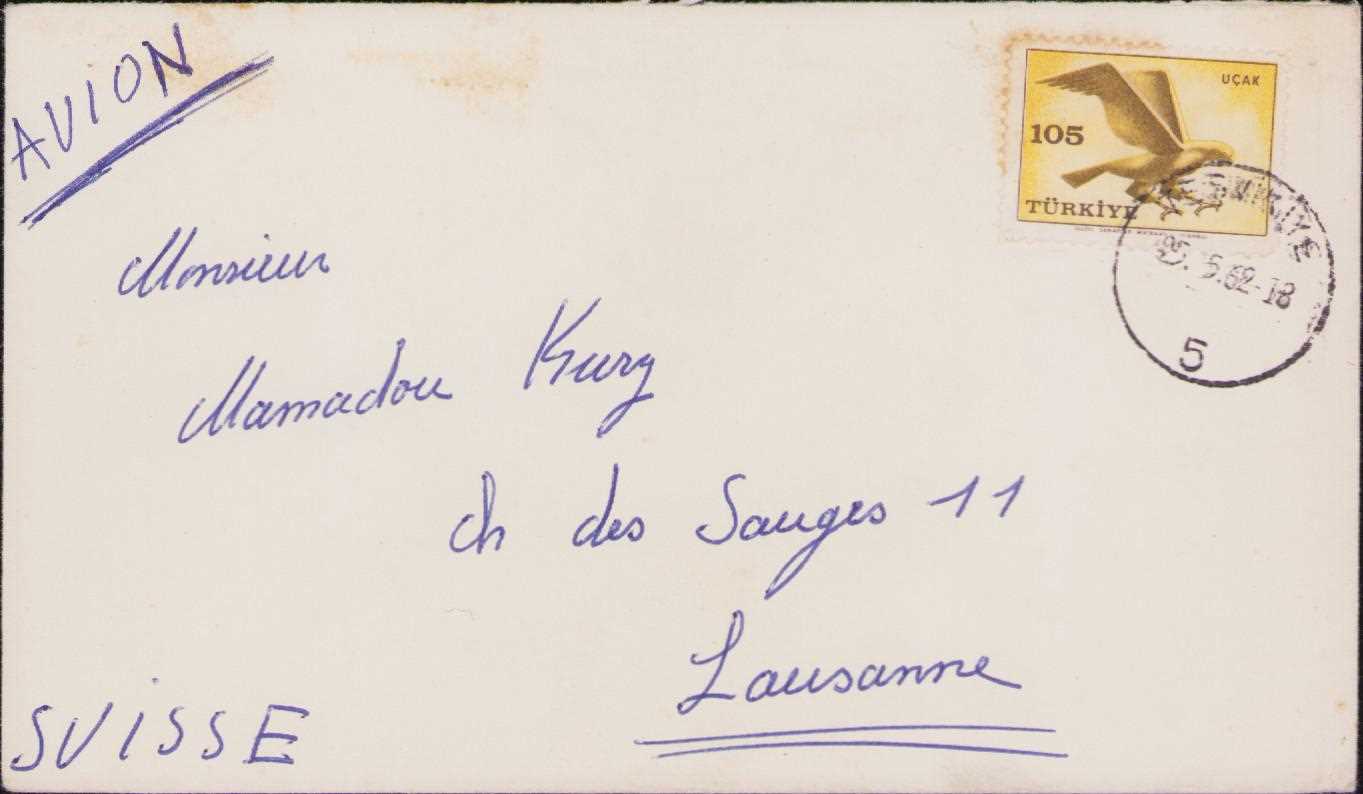 AVION
UÇAK
105
TÜRKİYE
5.62-18
5
Monsieur
Mamadou Kury
ch des Sauges 11
Lausanne
SUISSE